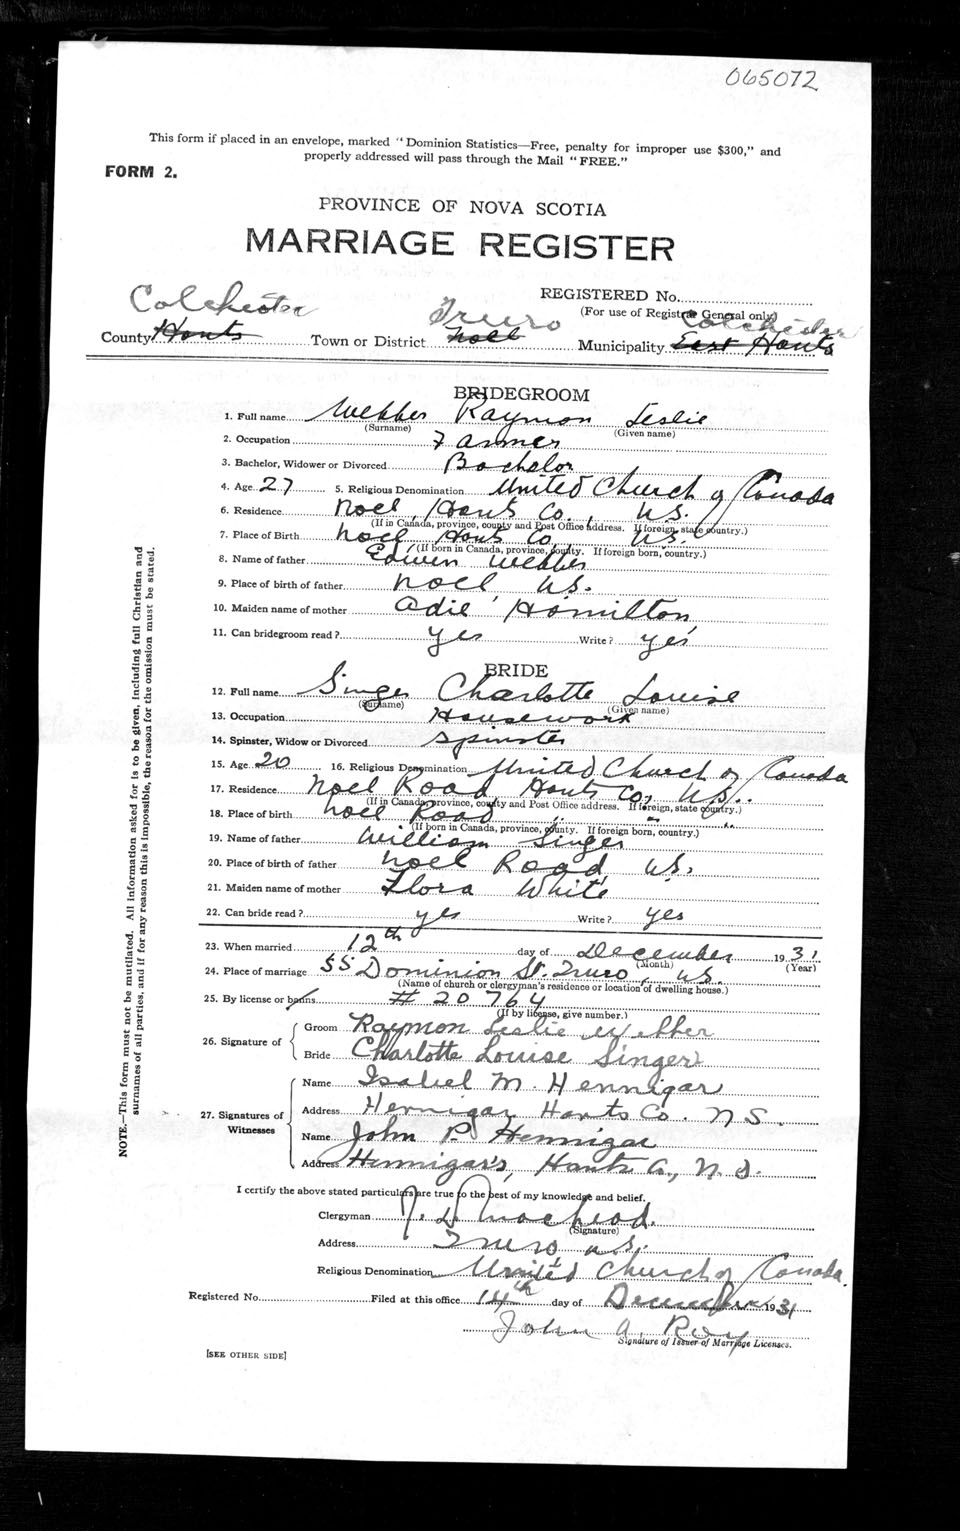 065072
This form if placed in an envelope, marked "Dominion Statistics—Free, penalty for improper use $300," and
properly addressed will pass through the Mail "FREE."
FORM 2.
PROVINCE OF NOVA SCOTIA
MARRIAGE REGISTER
REGISTERED No.
(For use of Registrar General only)
Colchester Truro Colchester
County Hants Town or District Noel Municipality East Hants
BRIDEGROOM
1. Full name Webber Raymon Leslie
(Surname) (Given name)
2. Occupation Farmer
3. Bachelor, Widower or Divorced Bachelor
4. Age 27 5. Religious Denomination United Church of Canada
6. Residence Noel, Hants Co., N.S.
(If in Canada, province, county and Post Office address. If foreign, state country.)
7. Place of Birth Noel Hants Co. N.S.
(If born in Canada, province, county. If foreign born, country.)
8. Name of father Edwin Webber
9. Place of birth of father Noel N.S.
10. Maiden name of mother Adie Hamilton
11. Can bridegroom read? yes Write? yes
BRIDE
12. Full name Singer Charlotte Louise
(Surname) (Given name)
13. Occupation Housework
14. Spinster, Widow or Divorced Spinster
15. Age 20 16. Religious Denomination United Church of Canada
17. Residence Noel Road Hants Co, N.S.
(If in Canada, province, county and Post Office address. If foreign, state country.)
18. Place of birth Noel Road " " "
(If born in Canada, province, county. If foreign born, country.)
19. Name of father William Singer
20. Place of birth of father Noel Road N.S.
21. Maiden name of mother Flora White
22. Can bride read? yes Write? yes
23. When married 12th day of December 1931
(Month) (Year)
24. Place of marriage 55 Dominion St. Truro, N.S.
(Name of church or clergyman's residence or location of dwelling house.)
25. By license or banns # 20764
(If by license, give number.)
26. Signature of Groom Raymon Leslie Webber
Bride Charlotte Louise Singer
27. Signatures of Witnesses
Name Isabel M. Hennigar
Address Hennigar Hants Co. N S.
Name John P. Hennigar
Address Hennigar's, Hants Co., N. S.
I certify the above stated particulars are true to the best of my knowledge and belief.
Clergyman J. D. MacLeod.
(Signature)
Address Truro N.S.
Religious Denomination United Church of Canada.
Registered No. Filed at this office 14th day of December 1931
John A. Roy
Signature of Issuer of Marriage Licenses.
[SEE OTHER SIDE]
NOTE.—This form must not be mutilated. All information asked for is to be given, including full Christian and
surnames of all parties, and if for any reason this is impossible, the reason for the omission must be stated.